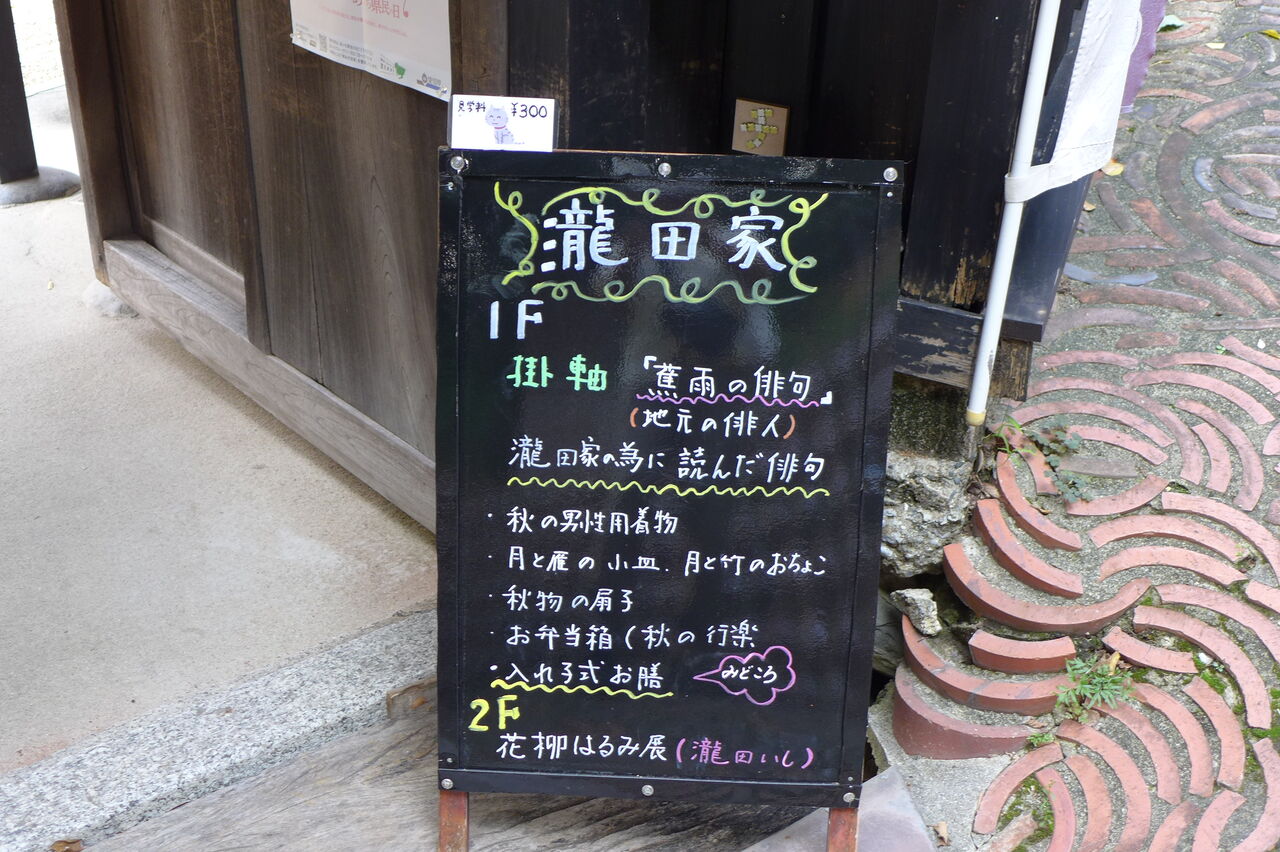 県民の日
見学料 ¥300
瀧田家
1F
掛軸 「蕉雨の俳句」
(地元の俳人)
瀧田家の為に読んだ俳句
・秋の男性用着物
・月と雁の小皿.月と竹のおちょこ
・秋物の扇子
・お弁当箱(秋の行楽
・入れ子式お膳 みどころ
2F
花柳はるみ展(瀧田いし)